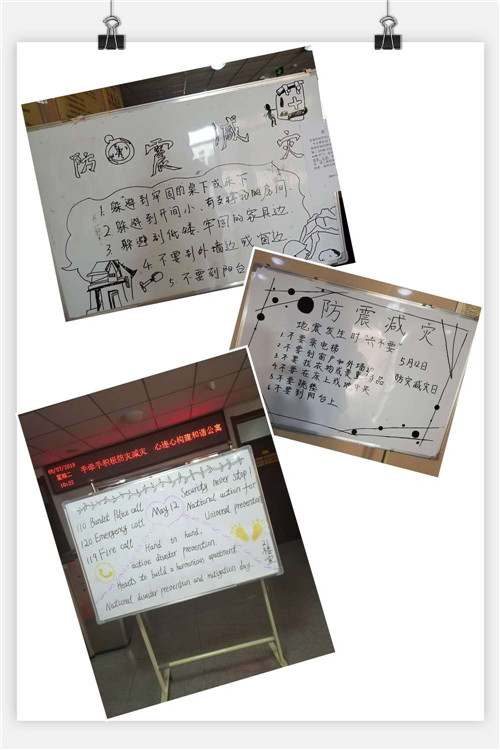 防震减灾
1. 躲避到牢固的桌下或床下
2. 躲避到开间小、有支撑的房间
3. 躲避到低矮、牢固的家具边
4. 不要到外墙边或窗边
5. 不要到阳台
防震减灾
地震发生时六不要
5月12日
防灾减灾日
1. 不要乘电梯
2. 不要到窗户和外墙边
3. 不要找衣物或贵重物品
4. 不要在床上或地中央
5. 不要跳楼
6. 不要到阳台上
05/07/2019
星期二
10:25
手牵手积极防灾减灾 心连心构建和谐公寓
110 Bandet Police call
120 Emergency call
119 Fire call
May 12
Security never stop!
National action for
Universal prevention
Hand in hand,
active disaster prevention.
Hearts to build a harmonious apartment.
National disaster prevention and mitigation day.